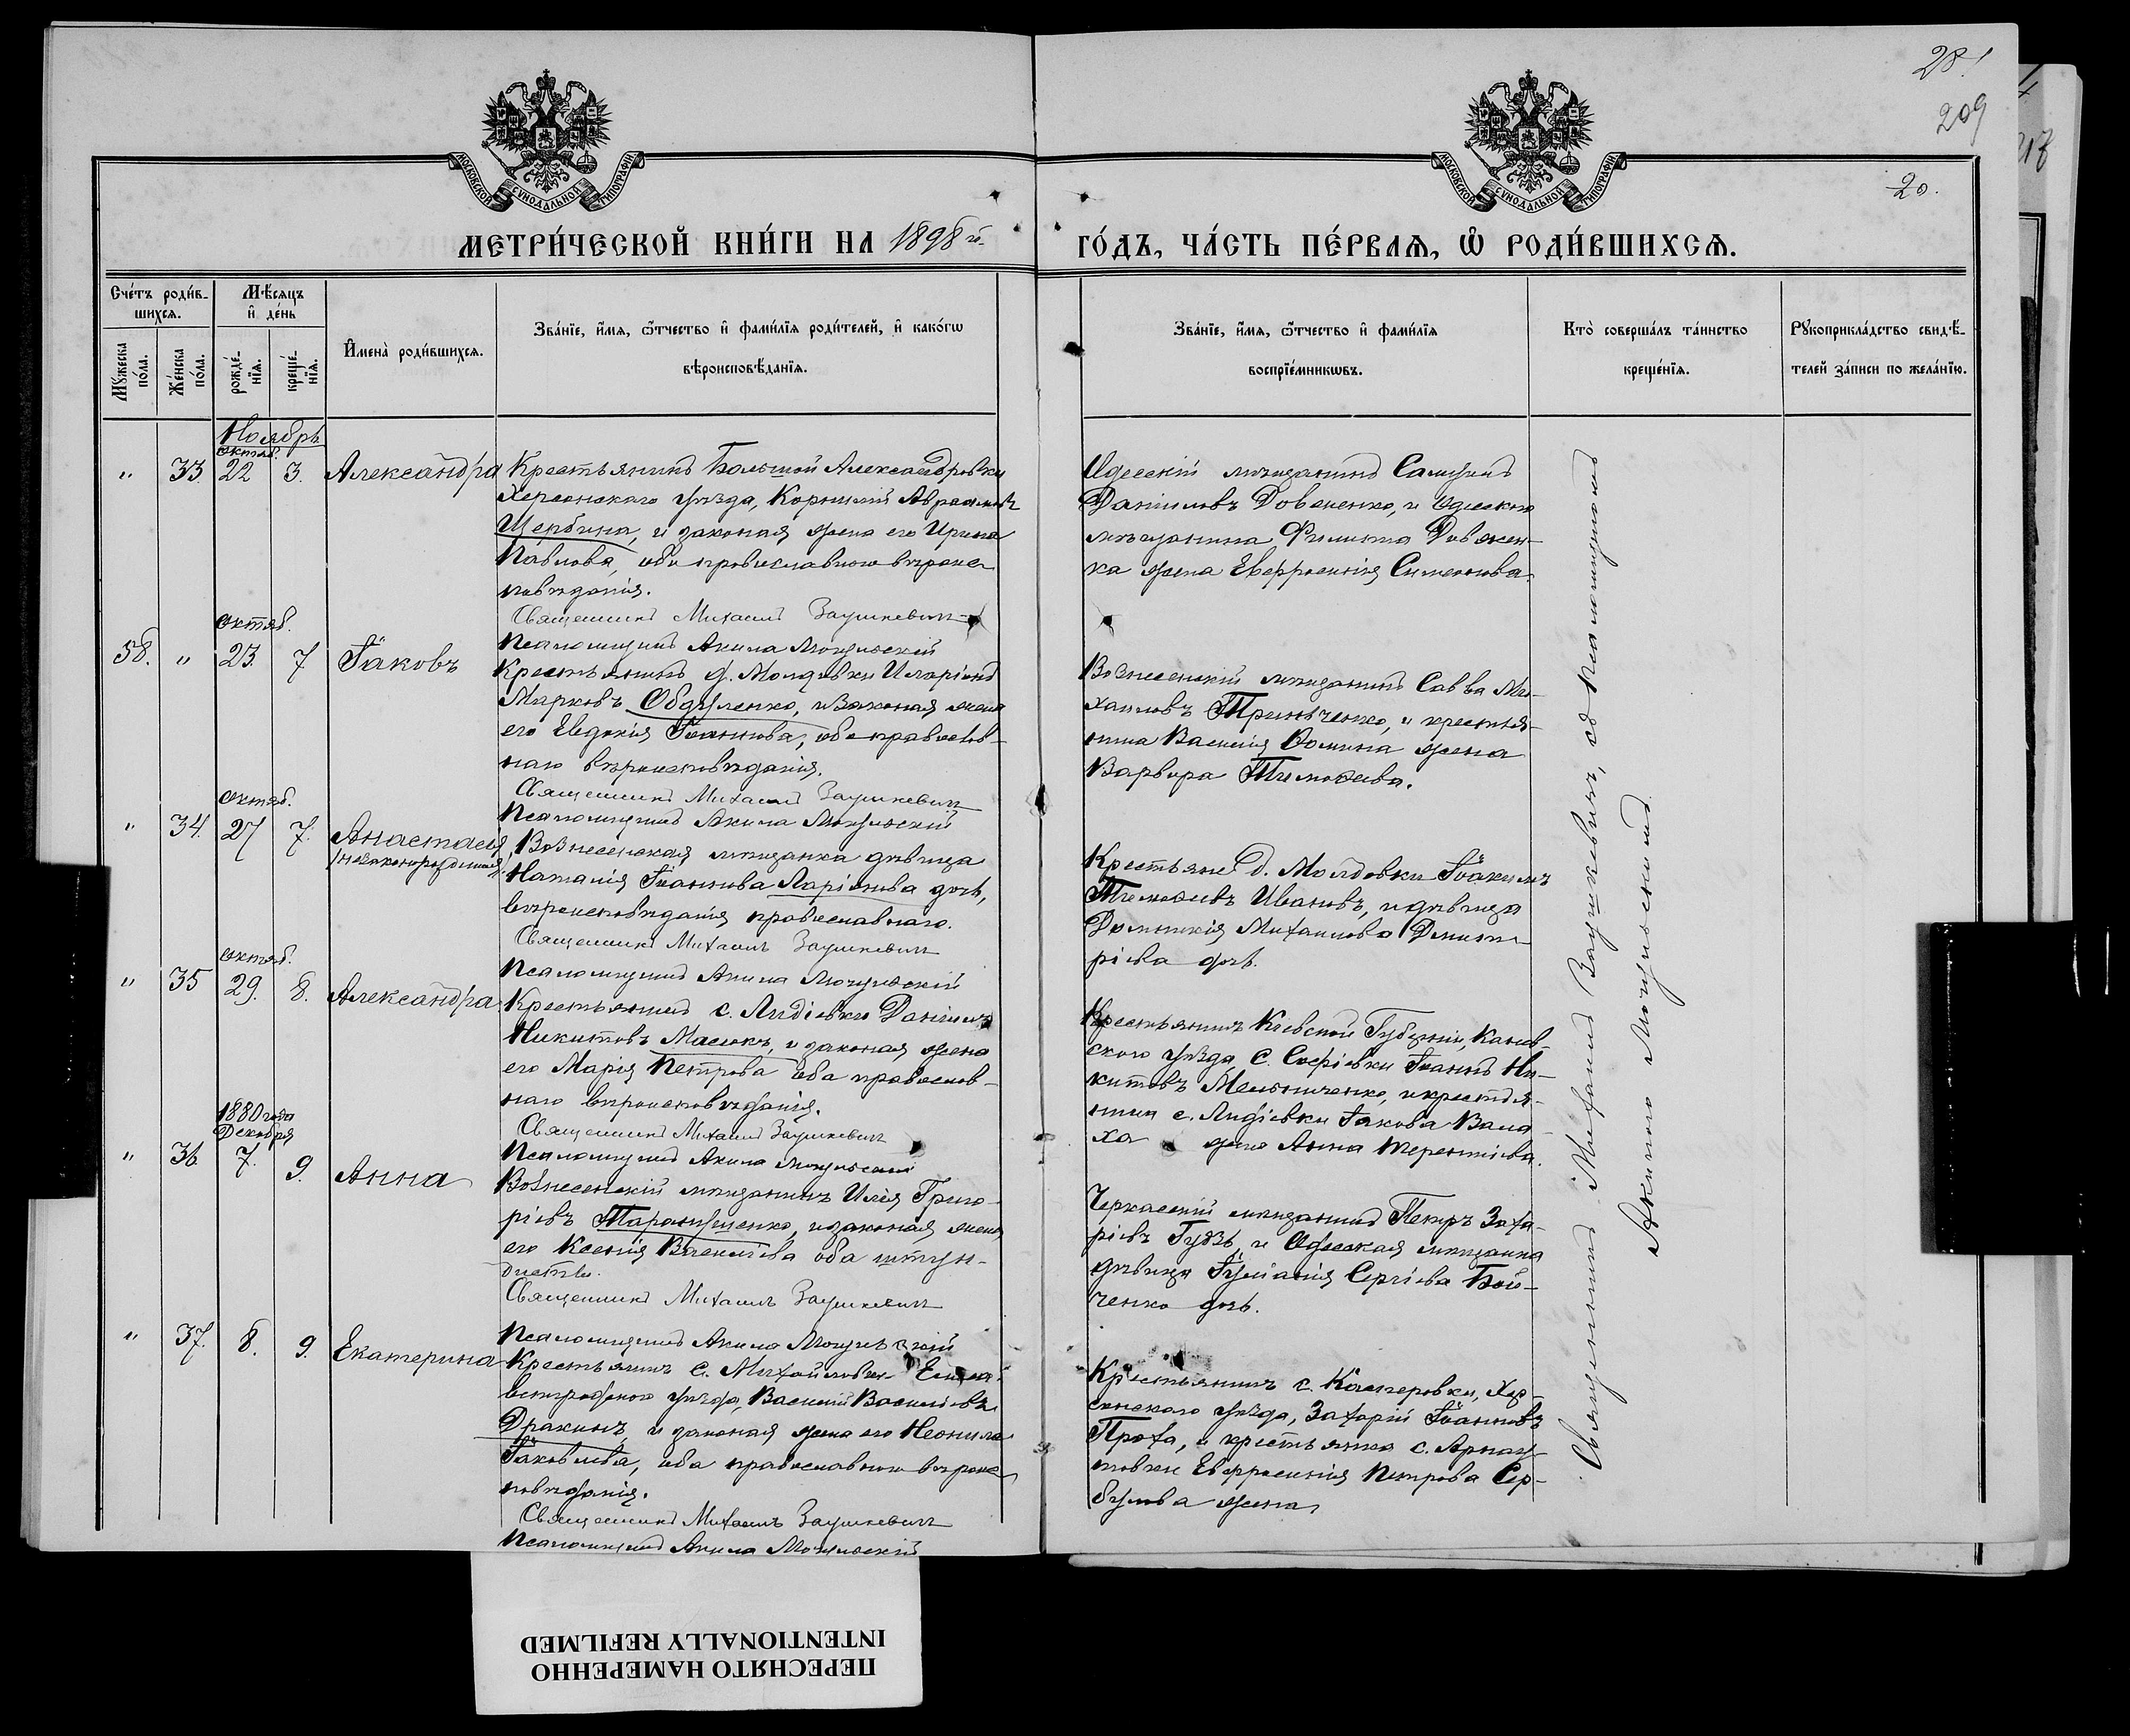 28.
209
20.
217
МОСКОВСКОЙ СѴНОДАЛЬНОЙ ТИПОГРАФІИ
МОСКОВСКОЙ СѴНОДАЛЬНОЙ ТИПОГРАФІИ
МЕТРИ́ЧЕСКОЙ КНИ́ГИ НА 1898 й.
ГО́ДЪ, ЧА́СТЬ ПЕ́РВАѦ, Ѽ РОДИ́ВШИХСѦ.
Сче́тъ роди́в-
шихсѧ.
Мѣ́сяцъ
и҆ де́нь
Мꙋ́жеска
по́ла.
Же́нска
по́ла.
рожде́-
нїѧ.
креще́-
нїѧ.
И҆мена̀ роди́вшихсѧ.
Зва́нїе, и҆́мѧ, ѻ҆́тчество и҆ фами́лїѧ роди́телей, и҆ како́гѡ
вѣроисповѣ́данїѧ.
Зва́нїе, и҆́мѧ, ѻ҆́тчество и҆ фами́лїѧ
воспрїе́мникѡвъ.
Кто̀ соверша́лъ та́инство
креще́нїѧ.
Рꙋкоприкла́дство свидѣ́-
телей за́писи по жела́нїю.
Ноябрь
октяб.
" 33. 22 3. Александра
Крестьянинъ Большой Александровки
Херсонскаго уѣзда, Корнилій Аврамовъ
Щербина, и законая жена его Ирина
Павлова, оба православнаго вѣроис-
повѣданія.
Священникъ Михаилъ Заушкевичъ
Псаломщикъ Акила Мочульскій
Одесскій мѣщанинъ Самуилъ
Даниловъ Довженко, и Одесскаго
мѣщанина Филиппа Довжен-
ка жена Евфросинія Симеонова.
октяб.
58. " 23. 7 Іаковъ
Крестьянинъ д. Молдовки Иларіонъ
Марковъ Обдуленко, и законая жена
его Евдокія Іоаннова, оба православ-
наго вѣроисповѣданія.
Священникъ Михаилъ Заушкевичъ
Псаломщикъ Акила Мочульскій
Вознесенскій мѣщанинъ Савва Ми-
хаиловъ Гриньченко, и крестья-
нина Василія Фомина жена
Варвара Тимофеева.
октяб.
" 34. 27 7. Анастасія
/незаконорожденная/
Вознесенская мѣщанка дѣвица
Наталія Іоаннова Ларіонова дочь,
вѣроисповѣданія православнаго.
Священникъ Михаилъ Заушкевичъ
Псаломщикъ Акила Мочульскій
Крестьяне д. Молдовки Іоакимъ
Тимофеевъ Ивановъ, и дѣвица
Домникія Михаилова Дмит-
ріева дочь.
октяб.
" 35 29. 8. Александра
Крестьянинъ с. Лидіевки Даніилъ
Никитовъ Масюкъ, и законая жена
его Марія Петрова оба православ-
наго вѣроисповѣданія.
Священникъ Михаилъ Заушкевичъ
Псаломщикъ Акила Мочульскій
Крестьянинъ Кіевской Губерніи, Канев-
скаго уѣзда с. Софіевки Іоаннъ Ни-
китовъ Мельниченко, и крестья-
нина с. Лидіевки Іакова Вала-
ха жена Анна Терентіева.
1880 года
Декабря
" 36 7. 9. Анна
Вознесенскій мѣщанинъ Илія Григо-
ріевъ Таранущенко, и законая жена
его Ксенія Василіева оба штун-
дисты.
Священникъ Михаилъ Заушкевичъ
Псаломщикъ Акила Мочульскій
Черкасскій мѣщанинъ Петръ Заха-
ріевъ Гудзь, и Одесская мѣщанка
дѣвица Іуліанія Сергіева Бой-
ченко дочь.
" 37. 8. 9. Екатерина
Крестьянинъ с. Михайловки Елиса-
ветградскаго уѣзда, Василій Василіевъ
Дракинъ, и законая жена его Неонила
Іаковлева, оба православнаго вѣроис-
повѣданія.
Священникъ Михаилъ Заушкевичъ
Псаломщикъ Акила Мочульскій
Крестьянинъ с. Касперовки, Хер-
сонскаго уѣзда, Захарій Іоанновъ
Проха, и крестьянка с. Арнау-
товки Евфросинія Петрова Сер-
булова жена
Священникъ Михаилъ Заушкевичъ, съ псаломщикомъ
Акилою Мочульскимъ.
ПЕРЕСНЯТО НАМЕРЕННО
INTENTIONALLY REFILMED